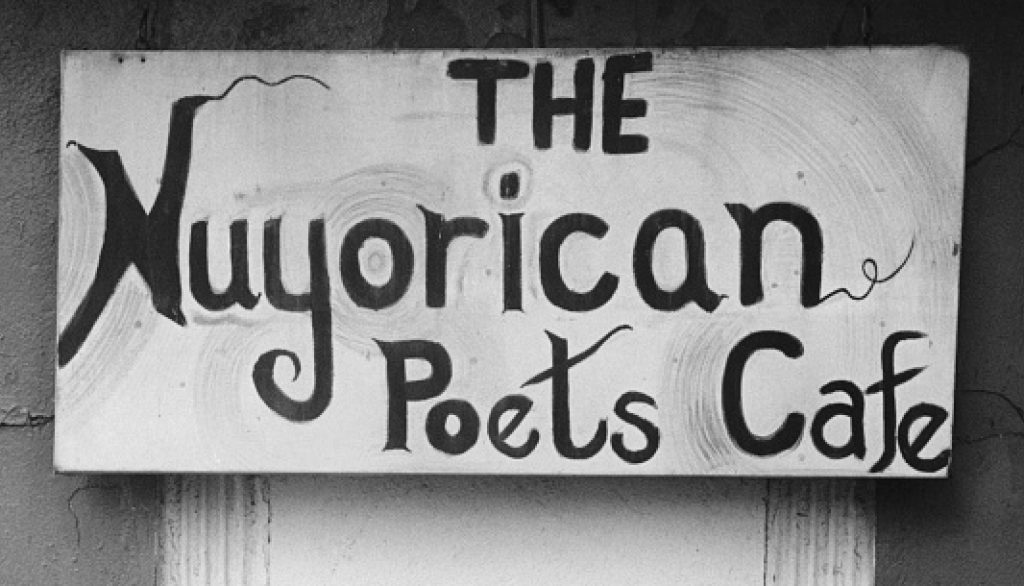 THE
Nuyorican
Poets Cafe